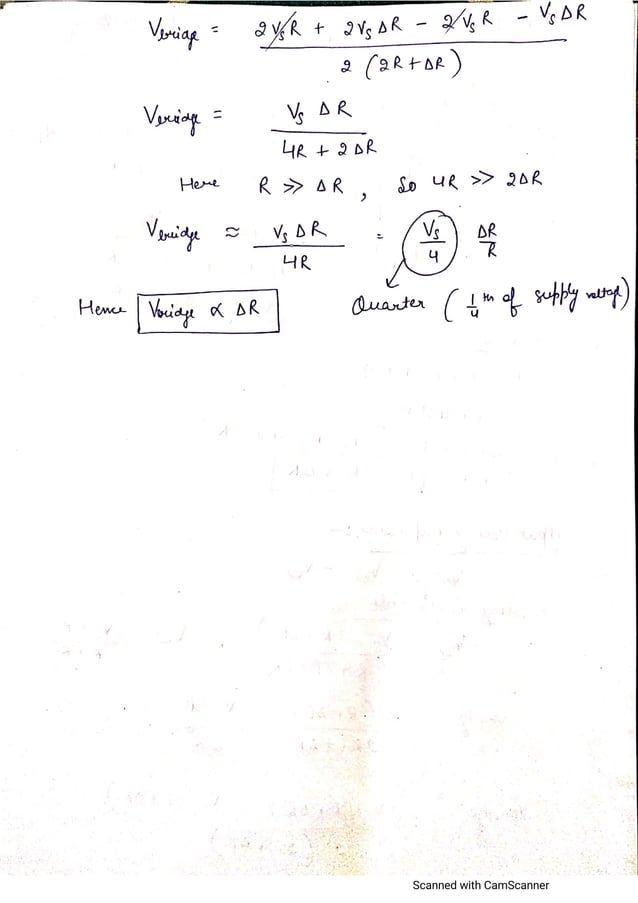 Vbridge = 2VsR + 2VsΔR - 2VsR - VsΔR
2 (2R+ΔR)
Vbridge = Vs ΔR
4R + 2ΔR
Here R >> ΔR, So 4R >> 2ΔR
Vbridge ≈ VsΔR / 4R = Vs / 4 ΔR / R
Hence Vbridge ∝ ΔR Quarter (1/4 th of supply voltage)
Scanned with CamScanner